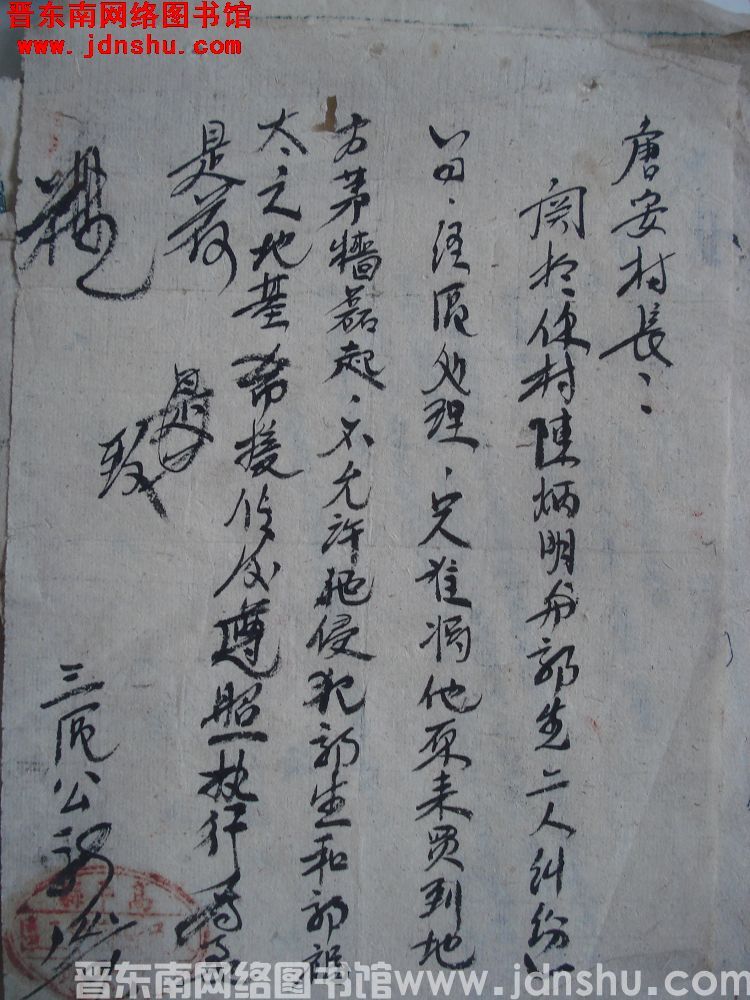 晋东南网络图书馆
www.jdnshu.com
唐安村長：
関於你村陳炳明与郭先二人糾纷
公田、経區处理、只准將他原来買到地
方茅牆磊起、不允許他侵犯郭生和郭
太之地基希接信后遵照执行為
是荷
是
致
三區公所
晋东南网络图书馆www.jdnshu.com